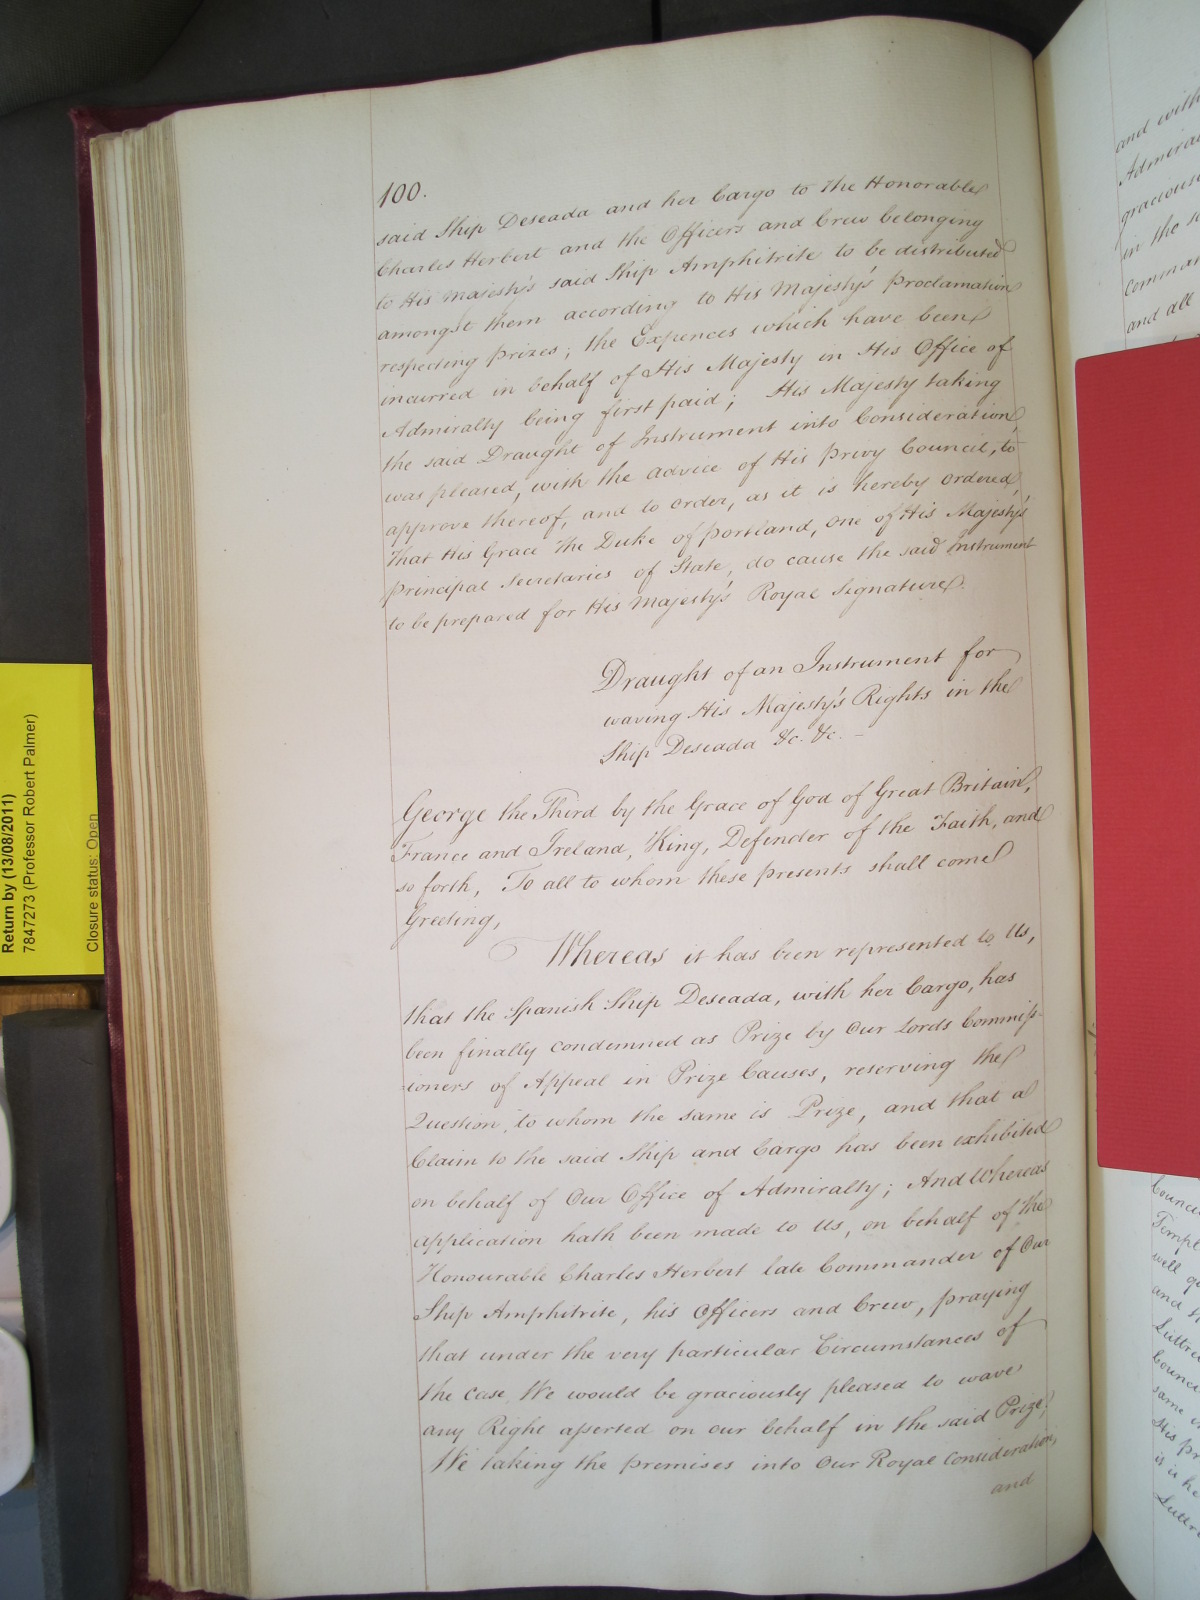 100.
said Ship Deseada and her Cargo to the Honorable
Charles Herbert and the Officers and Crew belonging
to His Majesty's said Ship Amphitrite to be distributed
amongst them according to His Majesty's Proclamation
respecting prizes; the Expences which have been
incurred in behalf of His Majesty in His Office of
Admiralty being first paid; His Majesty taking
the said Draught of Instrument into Consideration,
was pleased, with the advice of His Privy Council, to
approve thereof, and to order, as it is hereby ordered,
that His Grace the Duke of Portland, one of His Majesty's
principal Secretaries of State, do cause the said Instrument
to be prepared for His Majesty's Royal Signature.
Draught of an Instrument for
waving His Majesty's Rights in the
Ship Deseada &c. &c. —
George the Third by the Grace of God of Great Britain,
France and Ireland, King, Defender of the Faith, and
so forth, To all to whom these presents shall come
Greeting,
Whereas it has been represented to Us,
that the Spanish Ship Deseada, with her Cargo, has
been finally condemned as Prize by Our Lords Commiss-
ioners of Appeal in Prize Causes, reserving the
Question, to whom the same is Prize, and that a
Claim to the said Ship and Cargo has been exhibited
on behalf of Our Office of Admiralty; And Whereas
application hath been made to Us, on behalf of the
Honourable Charles Herbert late Commander of Our
Ship Amphitrite, his Officers and Crew, praying
that under the very particular Circumstances of
the case, We would be graciously pleased to wave
any Right asserted on our behalf in the said Prize;
We taking the premises into Our Royal Consideration,
and
and with
Admira
gracious
in the s
comman
and all
Counci
Templ
will q
and
Luttre
Counci
same
His pr
is it he
Luttr
Return by (13/08/2011)
7847273 (Professor Robert Palmer)
Closure status: Open